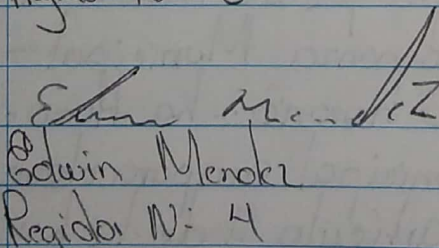 Edwin Mendez
Edwin Mendez
Regidor N: 4